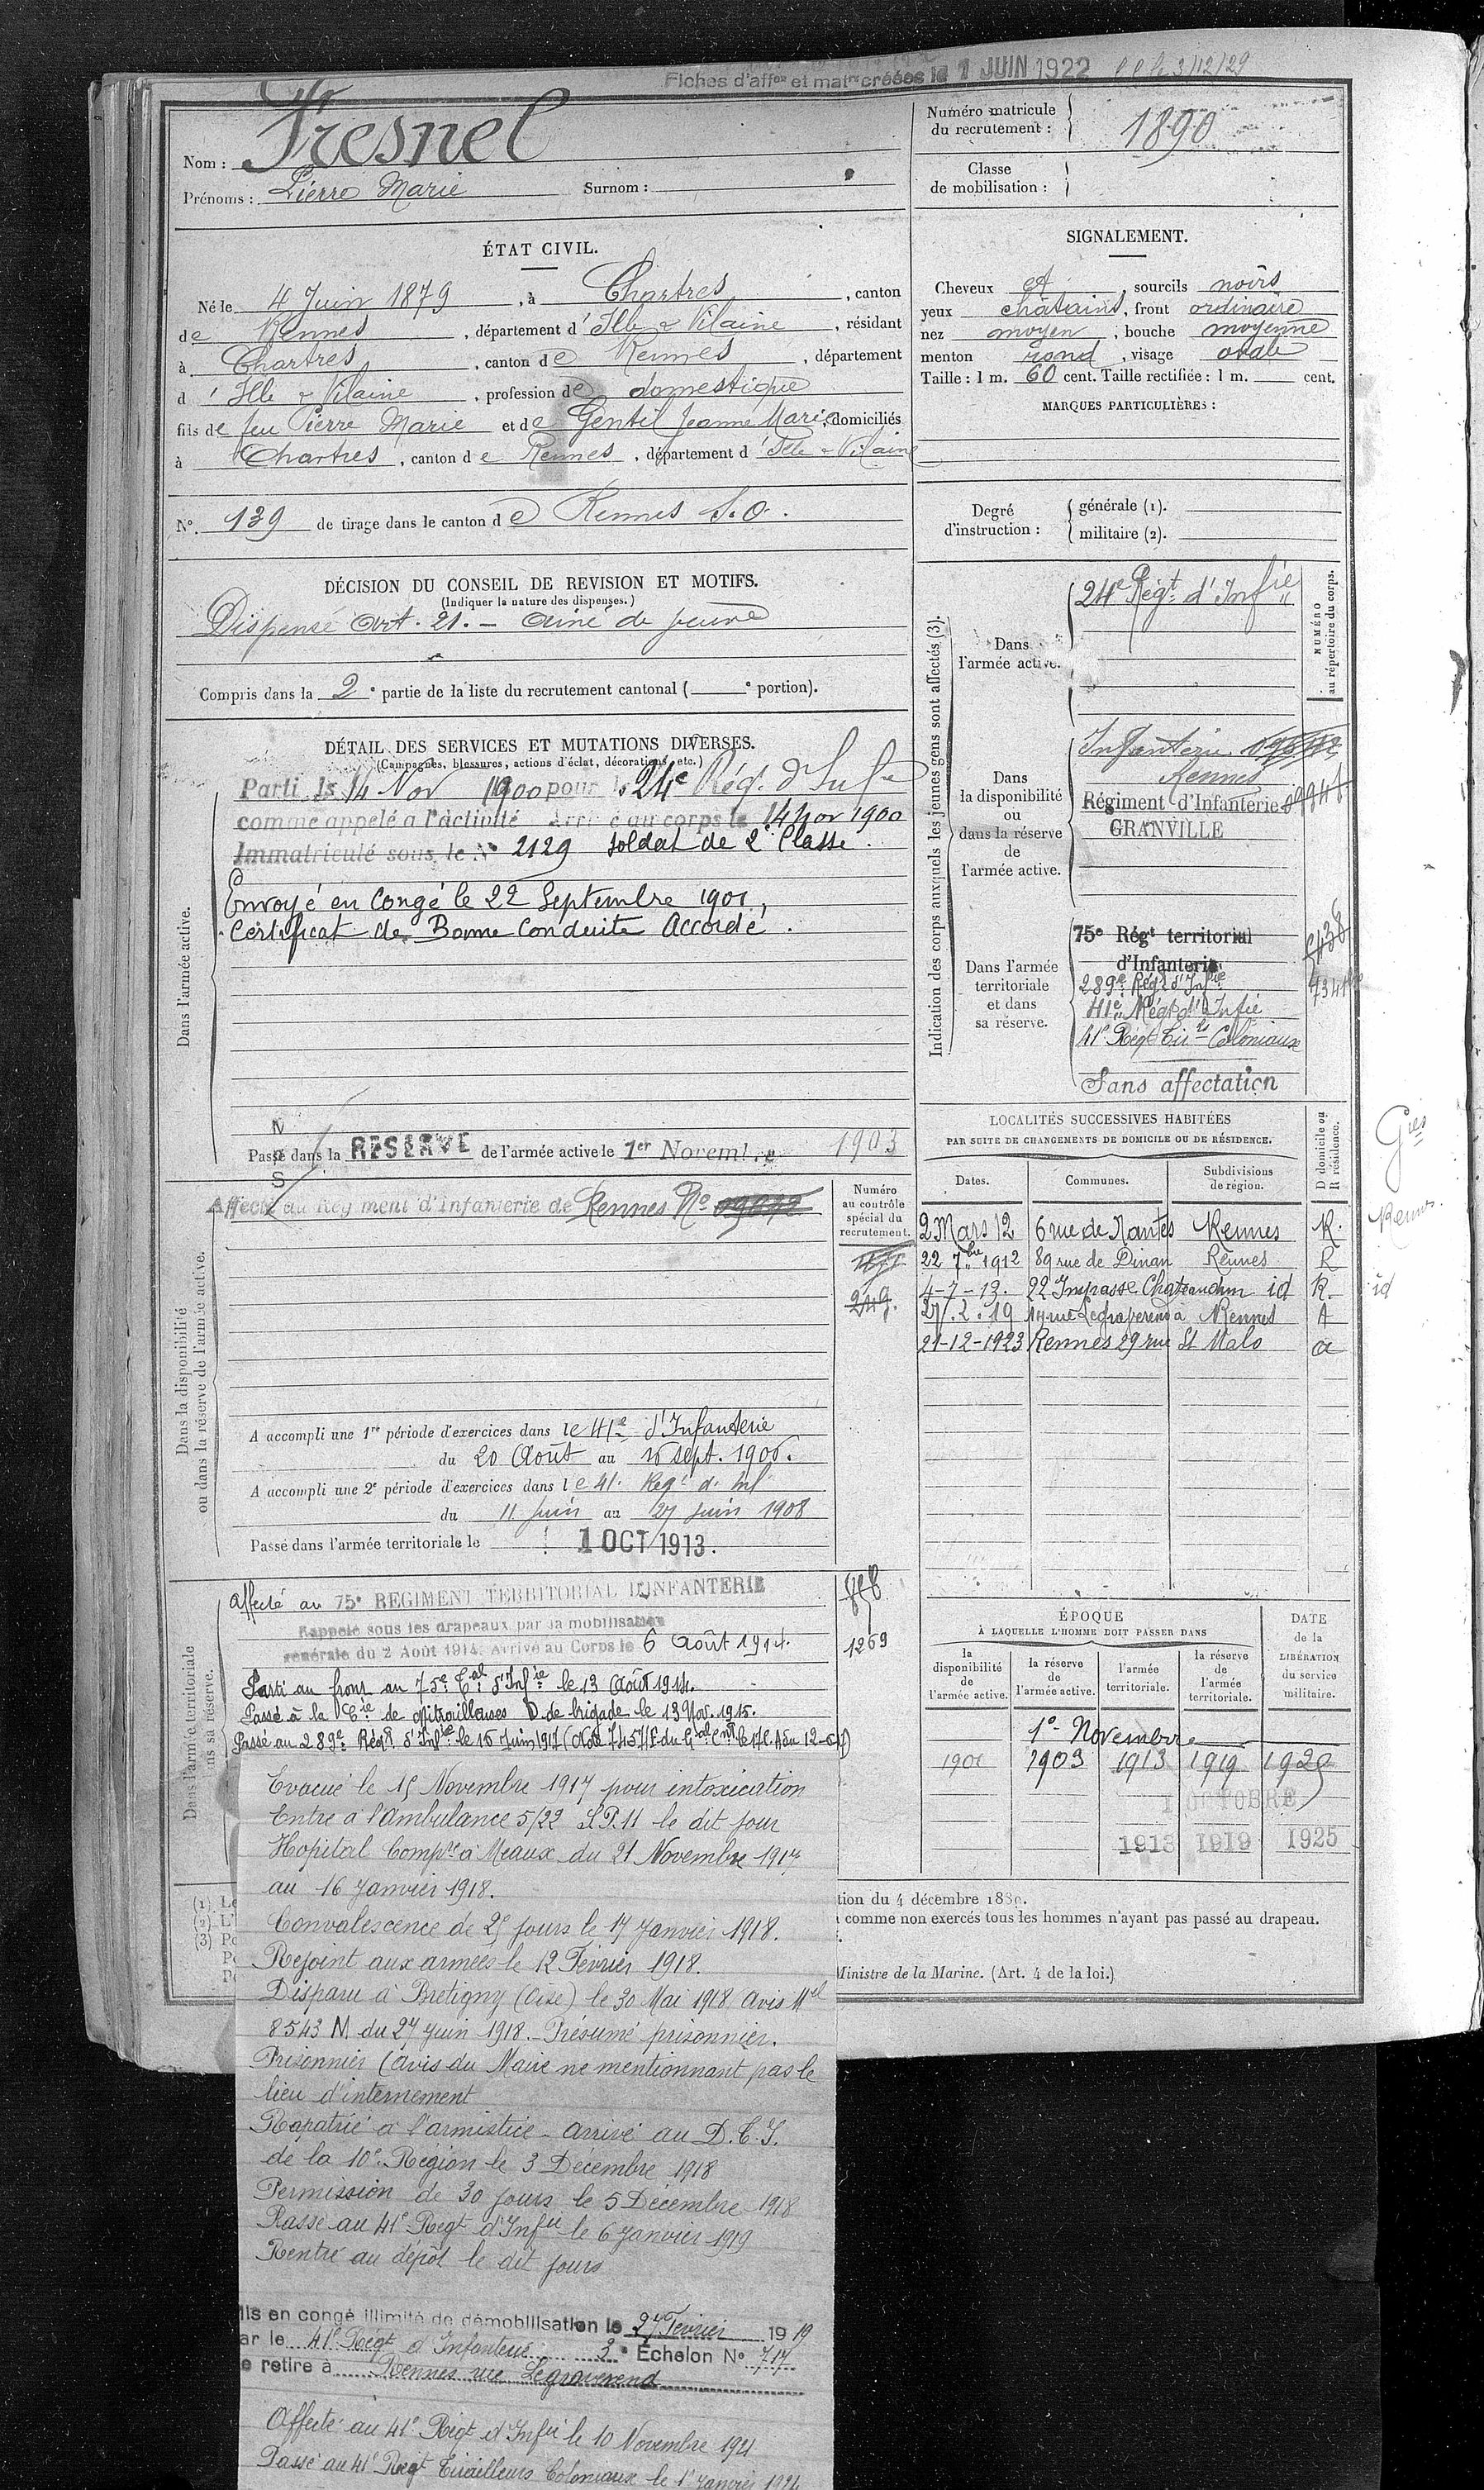 Fiches d'affon et matre créées le 1 JUIN 1922
3/12/29
Nom : Fresnel
Prénoms : Pierre Marie Surnom :
Numéro matricule
du recrutement : 1890
Classe
de mobilisation :
ÉTAT CIVIL.
Né le 4 Juin 1879, à Chartres, canton
de Rennes, département d'Ille & Vilaine, résidant
à Chartres, canton de Rennes, département
d'Ille & Vilaine, profession de domestique
fils de feu Pierre Marie et de Gentil Jeanne Marie, domiciliés
à Chartres, canton de Rennes, département d'Ille & Vilaine
N° 139 de tirage dans le canton de Rennes S.O.
SIGNALEMENT.
Cheveux et, sourcils noirs
yeux châtains, front ordinaire
nez moyen, bouche moyenne
menton rond, visage ovale
Taille : 1 m. 60 cent. Taille rectifiée : 1 m. cent.
MARQUES PARTICULIÈRES :
Degré
d'instruction :
générale (1).
militaire (2).
DÉCISION DU CONSEIL DE REVISION ET MOTIFS.
(Indiquer la nature des dispenses.)
Dispensé Art. 21. - aîné de veuve
Compris dans la 2e partie de la liste du recrutement cantonal ( e portion).
DÉTAIL DES SERVICES ET MUTATIONS DIVERSES.
(Campagnes, blessures, actions d'éclat, décorations, etc.)
Dans l'armée active.
Parti le 14 Nov 1900 pour le 24e Rég. d'Infie
comme appelé à l'activité Arrivé au corps le 14 Nov 1900
Immatriculé sous le N° 2129 soldat de 2e Classe.
Envoyé en Congé le 22 Septembre 1901,
Certificat de Bonne Conduite Accordé.
N
S
Passé dans la RÉSERVE de l'armée active le 1er Novembre 1903
Indication des corps auxquels les jeunes gens sont affectés (3).
NUMÉRO
au répertoire du corps.
Dans
l'armée active.
24e Régt d'Infie
Dans
la disponibilité
ou
dans la réserve
de
l'armée active.
Infanterie
Rennes
Régiment d'Infanterie
GRANVILLE
Dans l'armée
territoriale
et dans
sa réserve.
75e Régt territorial
d'Infanterie
289e Régt d'Infie
41e Régt d'Infie
41e Régt Tirrs Coloniaux
Sans affectation
LOCALITÉS SUCCESSIVES HABITÉES
PAR SUITE DE CHANGEMENTS DE DOMICILE OU DE RÉSIDENCE.
D domicile ou
R résidence.
Dates. Communes. Subdivisions
de région.
2 Mars 12 6 rue de Nantes Rennes R.
22 7bre 1912 89 rue de Dinan Rennes R
4-7-13. 22 Impasse Chateaudun id R.
27.2.19 14 rue Legraverend à Rennes A
21-12-1923 Rennes 29 rue St Malo a
Gies
Rennes.
id
Dans la disponibilité
ou dans la réserve de l'armée active.
Affecté au Régiment d'Infanterie de Rennes No
Numéro
au contrôle
spécial du
recrutement.
A accompli une 1re période d'exercices dans le 41e d'Infanterie
du 20 Août au 16 sept. 1906.
A accompli une 2e période d'exercices dans le 41. Régt d. Inf
du 11 Juin au 27 Juin 1908
Passé dans l'armée territoriale le 1 OCT 1913.
Dans l'armée territoriale
ans sa réserve.
affecté au 75e RÉGIMENT TERRITORIAL D'INFANTERIE
Rappelé sous les drapeaux par la mobilisation
générale du 2 Août 1914. Arrivé au Corps le 6 Août 1914.
1269
Parti au front au 75e Tal d'Infie le 13 Août 1914.
Passé à la Cie de Mitrailleuses D de brigade le 13 Nov. 1915.
Passé au 289e Régt d'Infie le 16 Juin 1917
Evacué le 15 Novembre 1917 pour intoxication
Entre à l'Ambulance 5/22 S.P. 11 le dit jour
Hopital Compre à Meaux du 21 Novembre 1917
au 16 Janvier 1918.
Convalescence de 25 jours le 17 Janvier 1918.
Rejoint aux armées le 12 Février 1918.
Disparu à Bretigny (Oise) le 30 Mai 1918 Avis Mel
8543 M. du 27 Juin 1918. - Présumé prisonnier.
Prisonnier (avis du Maire ne mentionnant pas le
lieu d'internement
Rapatrié à l'armistice - arrivé au D.T.I.
de la 10e Région le 3 Décembre 1918
Permission de 30 jours le 5 Décembre 1918
Passé au 41e Régt d'Infie le 6 Janvier 1919
Rentré au dépôt le dit jours
Mis en congé illimité de démobilisation le 27 Février 1919
ar le 41e Régt d'Infanterie 3e Échelon N° 717
e retire à Rennes rue Legraverend
Affecté au 41e Régt d'Infie le 10 Novembre 1921
Passé au 41e Régt Tirailleurs Coloniaux le 1er Janvier 1924
ÉPOQUE
À LAQUELLE L'HOMME DOIT PASSER DANS
la
disponibilité
de
l'armée active.
la réserve
de
l'armée active.
l'armée
territoriale.
la réserve
de
l'armée
territoriale.
DATE
de la
LIBÉRATION
du service
militaire.
1er Novembre
1901 1903 1913 1919 1925
1 OCTOBRE
1913 1919 1925
(1) Le
(2) L'
(3) Po
tion du 4 décembre 1889.
comme non exercés tous les hommes n'ayant pas passé au drapeau.
Ministre de la Marine. (Art. 4 de la loi.)